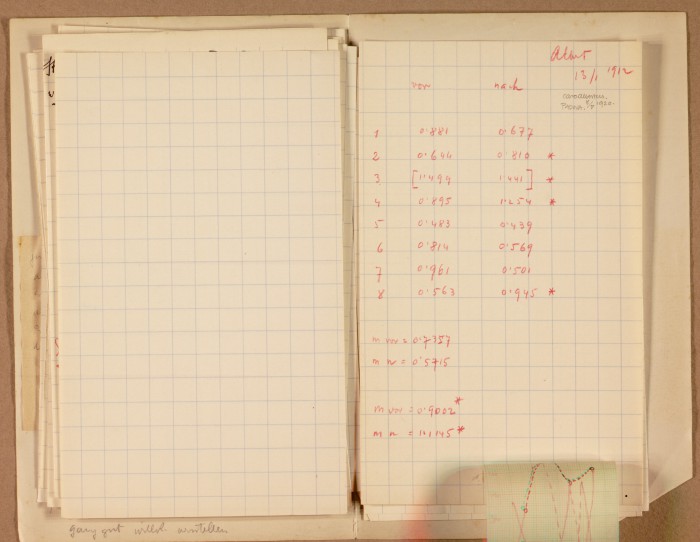 Albert
13/1 1912
vor nach
1 0.881 0.677
2 0.644 0.810 *
3 [1.494 1.441] *
4 0.895 1.254 *
5 0.483 0.439
6 0.814 0.569
7 0.961 0.501
8 0.563 0.945 *
m vor = 0.7357
m n = 0.5715
m vor = 0.9002*
m n = 1.1145*
ganz gut